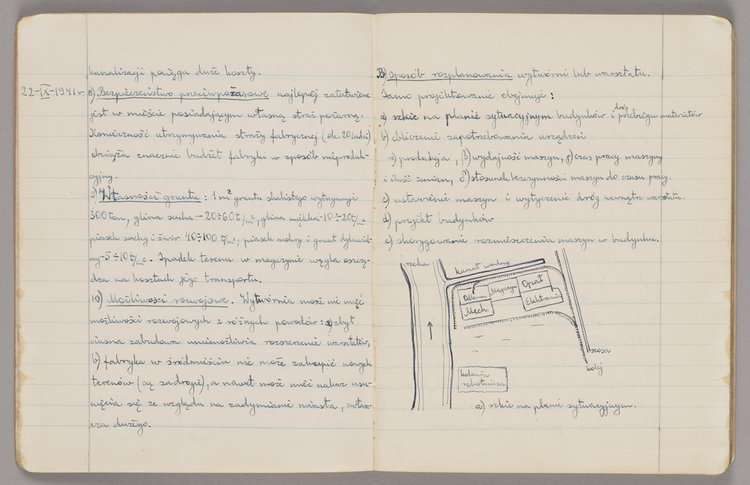 kanalizacji pociąga duże koszty.
22-IX-1941 r. 8) Bezpieczeństwo przeciwpożarowe najlepiej załatwione
jest w mieście posiadającym własną straż pożarną.
Konieczność utrzymywania straży fabrycznej (ok. 20 ludzi)
obciąża znacznie budżet fabryki w sposób nieproduk-
cyjny.
9) Własności gruntu: 1 m² gruntu skalistego wytrzymuje
300 ton, glina sucha - 20÷60 t/m², glina miękka - 10÷20 t/m²
piasek suchy i żwir 40÷100 t/m², piasek wolny i grunt
ny - 5÷10 t/m². Spadek terenu w magazynie węgla oszczę-
dza na kosztach jego transportu.
10) Możliwości rozwojowe. Wytwórnia może nie mieć
możliwości rozwojowych z różnych powodów: a) zbyt
ciasna zabudowa uniemożliwia rozszerzenie warsztatów,
b) fabryka w śródmieściu nie może zakupić nowych
terenów (są za drogie), a nawet może mieć nakaz usu-
nięcia się ze względu na zadymianie miasta, zwłasz-
cza dużego.
B) Sposób rozplanowania wytwórni lub warsztatu.
Samo projektowanie obejmuje:
dróg
a) szkic na planie sytuacyjnym budynków i przebiegu materiałów
b) obliczenie zapotrzebowania urządzeń
α) produkcja, β) wydajność maszyn, γ) czas pracy maszyny
i ilość zmian, δ) stosunek bezczynności maszyn do czasu pracy.
c) ustawienie maszyn i wytyczenie dróg wewnątrz warsztatu.
d) projekt budynków
e) skorygowanie rozmieszczenia maszyn w budynku.
rzeka
kanał wodny
Odlewn.
Magazyn
Opał
Mech.
Elektrownia
szosa
kolej
kolonia
robotnicza
a) szkic na planie sytuacyjnym.